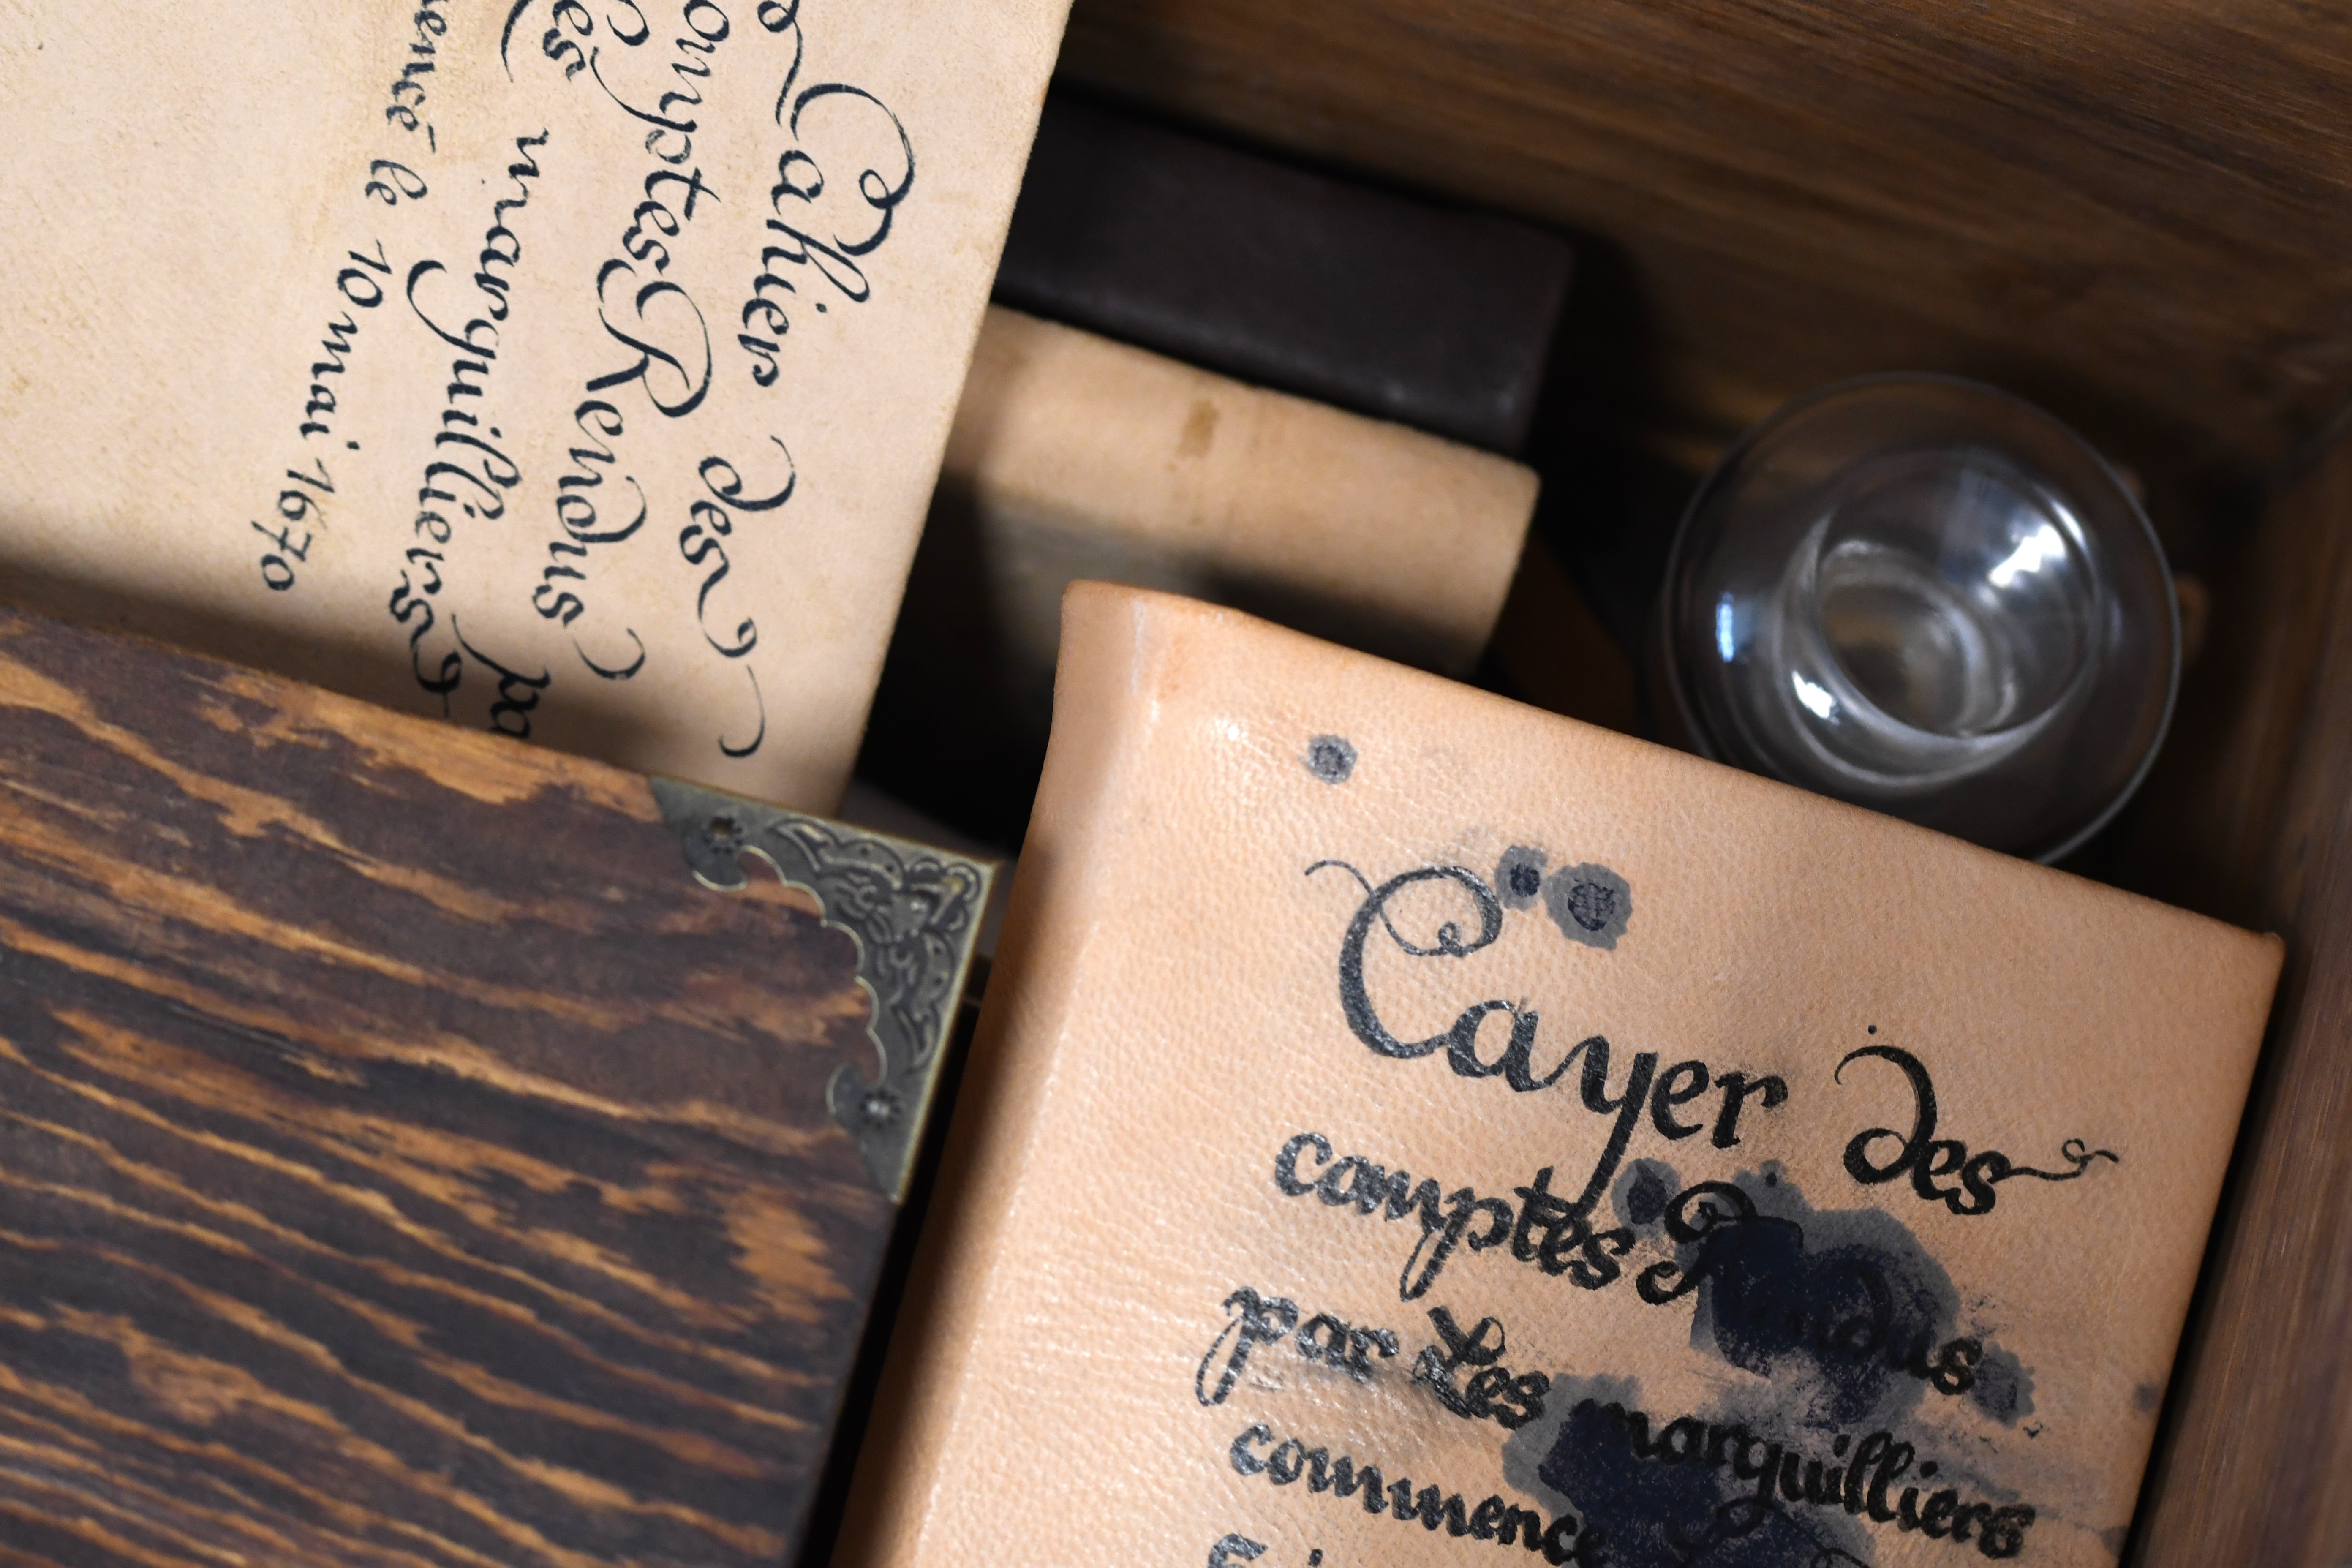 Cahier des
comptes Rendus
les marguilliers
mencé le 10 mai 1670
Cayer des
comptes Rendus
par Les marguilliers
commence